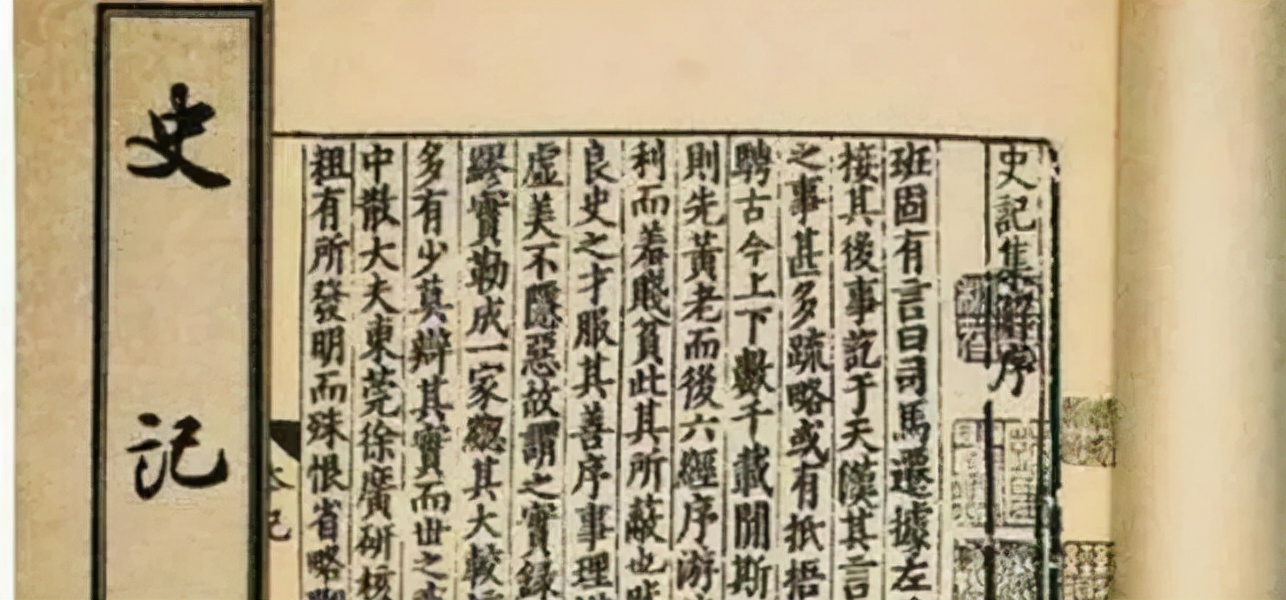 史記集解序
班固有言曰司馬遷據左
接其後事訖于天漢其言
之事甚多疏略或有抵捂
騁古今上下數千載間斯
則先黃老而後六經序游
利而羞賤貧此其所蔽也
良史之才服其善序事理
虛美不隱惡故謂之實錄
繆實勒成一家總其大較
多有少莫辯其實而世之
中散大夫東莞徐廣研核
粗有所發明而殊恨省略
史記